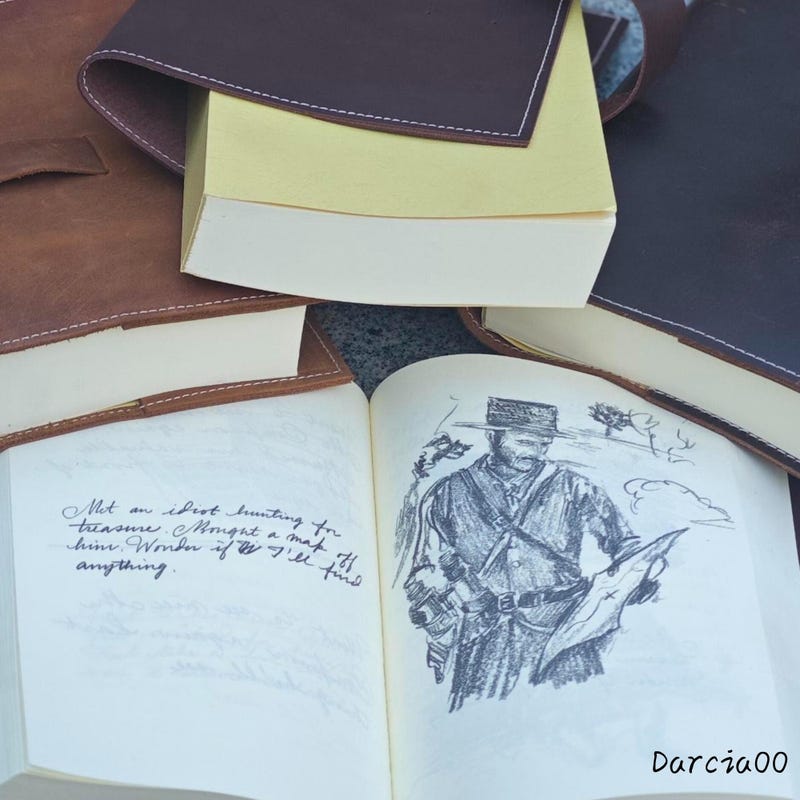 Met an idiot hunting for
treasure. Mought a map off
him. Wonder if I'll find
anything.
Darcia00